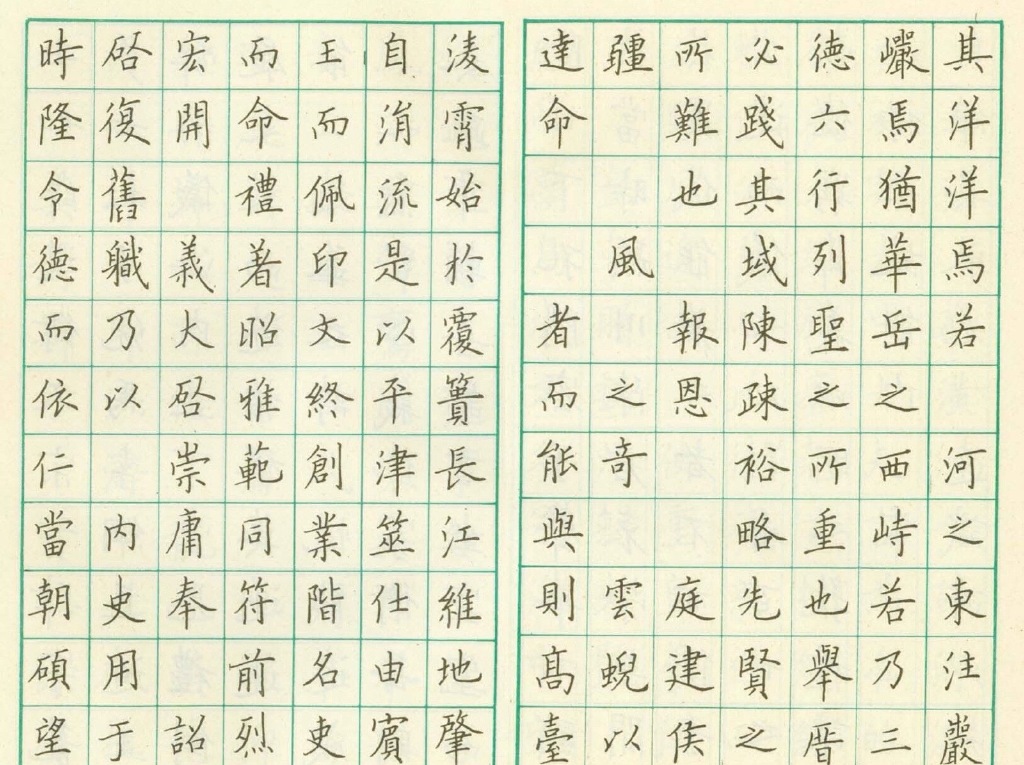 其洋洋焉若河之東注巖
巗焉猶華岳之西峙若乃三
德六行列聖之所重也舉厝
必踐其域陳疎裕略先賢之
所難也報恩庭建侯
疆風之奇雲蜺以
達命者而能與則高臺
淩霄始於覆簣長江維地肇
自涓流是以平津筮仕由賓
王而佩印文終創業階名吏
而命禮著昭雅範同符前烈
宏開義大啓崇庸奉詔
啓復舊職乃以內史用于
時隆令德而依仁當朝碩望